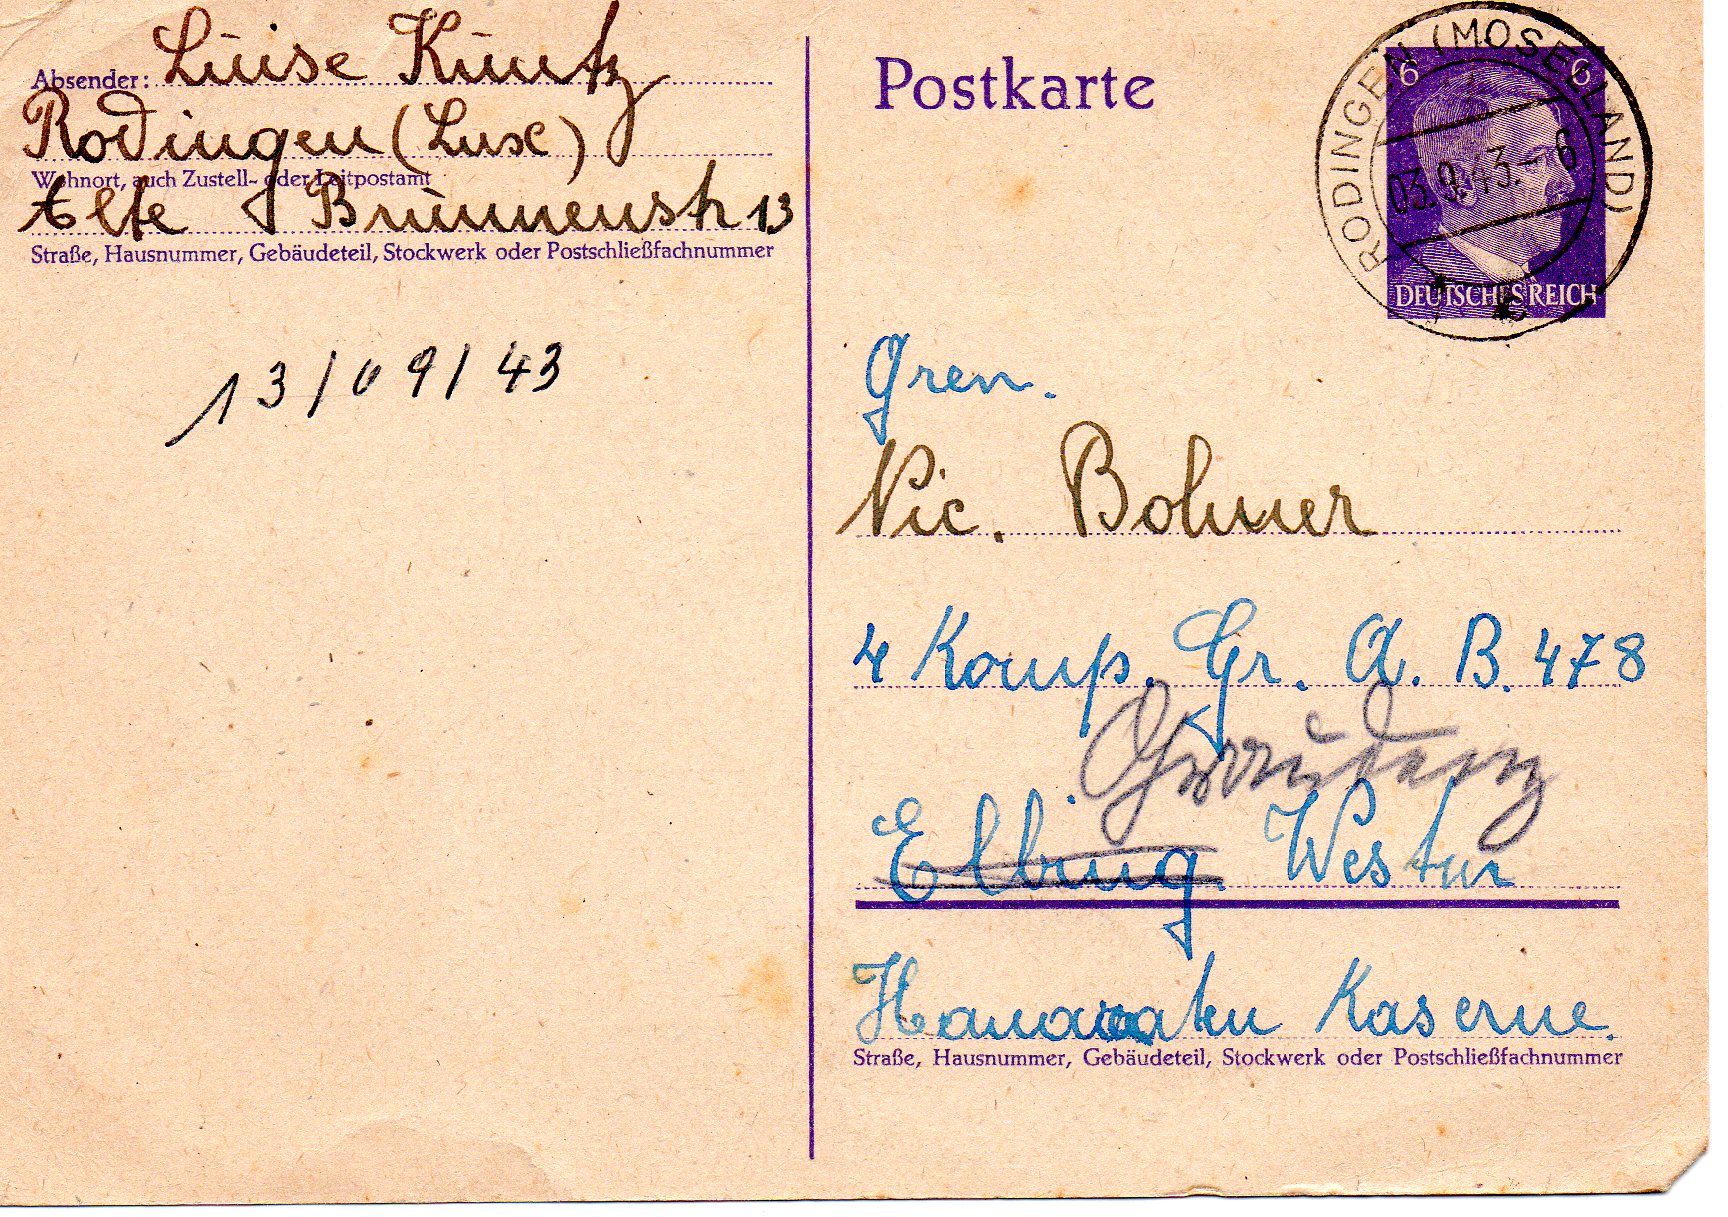 Absender: Luise Kuntz
Rodingen (Lux)
Wohnort, auch Zustell- oder Leitpostamt
Alte Brunnenstr 13
Straße, Hausnummer, Gebäudeteil, Stockwerk oder Postschließfachnummer
13/09/43
Postkarte
6 6
DEUTSCHES REICH
RODINGEN (MOSELLAND)
03.9.43.-6
Gren.
Nic. Bohmer
4 Komp. Gr. A. B. 478
Graudenz
Elbing Westpr
Kaserne.
Straße, Hausnummer, Gebäudeteil, Stockwerk oder Postschließfachnummer